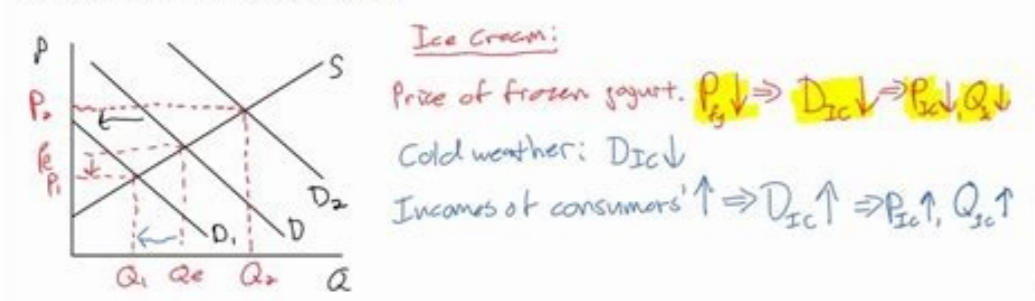 P
S
P₂
Pe
P₁
D₂
D₁
D
Q₁ Qe Q₂ Q
Ice Cream:
Price of frozen yogurt. P_fy ↓ ⇒ D_Ic ↓ ⇒ P_Ic ↓, Q_x ↓
Cold weather: D_Ic ↓
Incomes of consumers' ↑ ⇒ D_Ic ↑ ⇒ P_Ic ↑, Q_Ic ↑